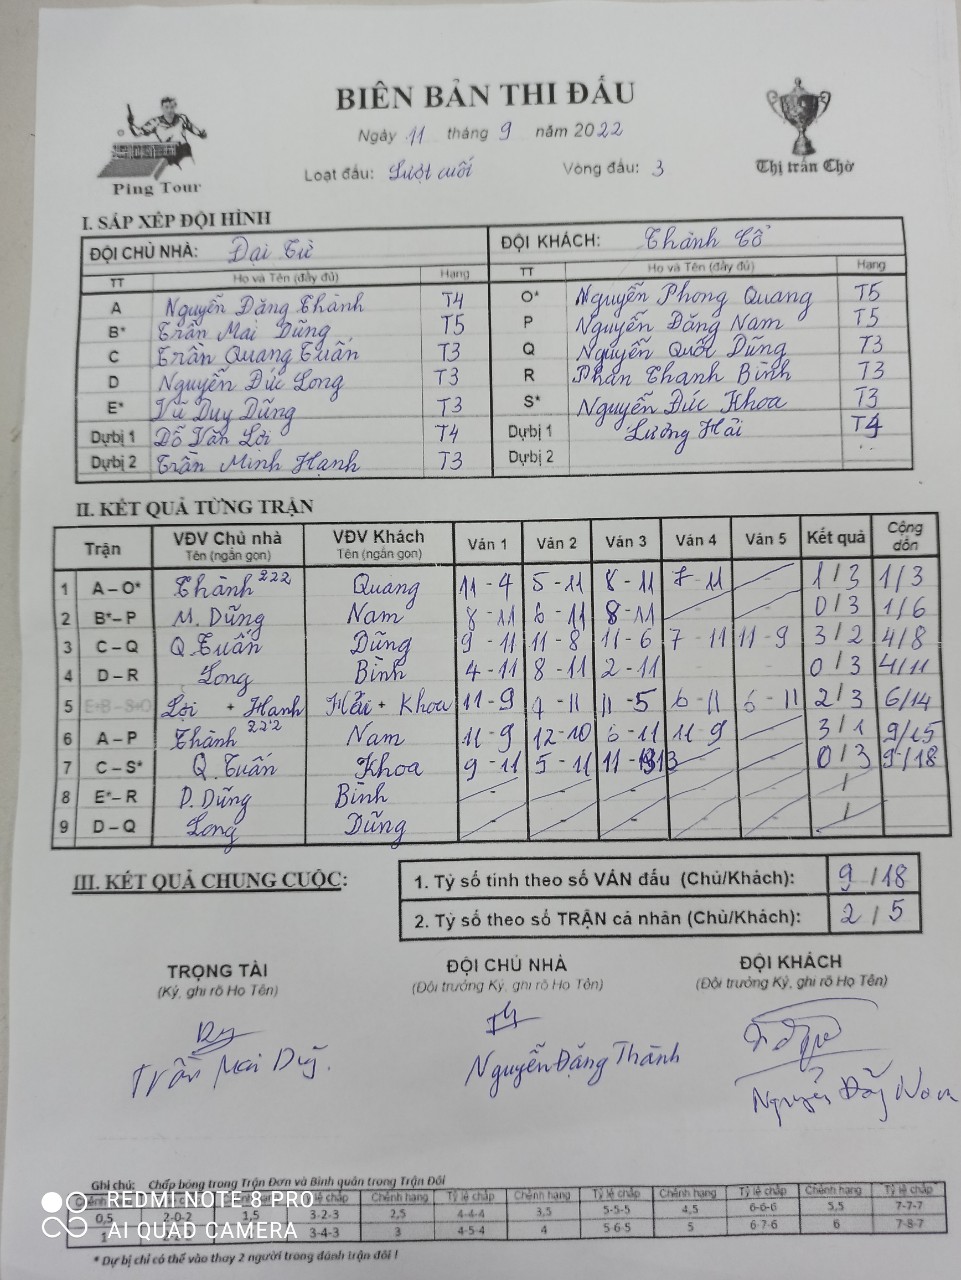 BIÊN BẢN THI ĐẤU
Ngày 11 tháng 9 năm 2022
Loạt đấu: Lượt cuối Vòng đấu: 3
Ping Tour
Thị trấn Chờ
I. SẮP XẾP ĐỘI HÌNH
ĐỘI CHỦ NHÀ: Đại Từ ĐỘI KHÁCH: Thành Cổ
TT Họ và Tên (đầy đủ) Hạng TT Họ và Tên (đầy đủ) Hạng
A Nguyễn Đăng Thành T4 O* Nguyễn Phong Quang T5
B* Trần Mai Dũng T5 P Nguyễn Đăng Nam T5
C Trần Quang Tuấn T3 Q Nguyễn Quốc Dũng T3
D Nguyễn Đức Long T3 R Phan Thanh Bình T3
E* Vũ Duy Dũng T3 S* Nguyễn Đức Khoa T3
Dự bị 1 Đỗ Văn Lợi T4 Dự bị 1 Lương Hải T4
Dự bị 2 Trần Minh Hạnh T3 Dự bị 2
II. KẾT QUẢ TỪNG TRẬN
Trận VĐV Chủ nhà Tên (ngắn gọn) VĐV Khách Tên (ngắn gọn) Ván 1 Ván 2 Ván 3 Ván 4 Ván 5 Kết quả Cộng dồn
1 A – O* Thành 222 Quang 11 - 4 5 - 11 8 - 11 7 - 11 1/3 1/3
2 B* – P M. Dũng Nam 8 - 11 6 - 11 8 - 11 0/3 1/6
3 C – Q Q. Tuấn Dũng 9 - 11 11 - 8 11 - 6 7 - 11 11 - 9 3/2 4/8
4 D – R Long Bình 4 - 11 8 - 11 2 - 11 - - 0/3 4/11
5 E+B – S+O Lợi + Hạnh Hải + Khoa 11 - 9 7 - 11 11 - 5 6 - 11 6 - 11 2/3 6/14
6 A – P Thành 222 Nam 11 - 9 12 - 10 6 - 11 11 - 9 3/1 9/15
7 C – S* Q. Tuấn Khoa 9 - 11 5 - 11 11 - 13 0/3 9/18
8 E* – R D. Dũng Bình
9 D – Q Long Dũng
III. KẾT QUẢ CHUNG CUỘC:
1. Tỷ số tính theo số VÁN đấu (Chủ/Khách): 9 / 18
2. Tỷ số theo số TRẬN cá nhân (Chủ/Khách): 2 / 5
TRỌNG TÀI ĐỘI CHỦ NHÀ ĐỘI KHÁCH
(Ký, ghi rõ Họ Tên) (Đội trưởng Ký, ghi rõ Họ Tên) (Đội trưởng Ký, ghi rõ Họ Tên)
Trần Mai Dũng. Nguyễn Đăng Thành Nguyễn Đăng Nam
Ghi chú: Chấp bóng trong Trận Đơn và Bình quân trong Trận Đôi
Chênh hạng Tỷ lệ chấp Chênh hạng Tỷ lệ chấp Chênh hạng Tỷ lệ chấp Chênh hạng Tỷ lệ chấp Chênh hạng Tỷ lệ chấp
0,5 2-0-2 1,5 3-2-3 2,5 4-4-4 3,5 5-5-5 4,5 6-6-6 5,5 7-7-7
1 3-4-3 3 4-5-4 4 5-6-5 5 6-7-6 6 7-8-7
* Dự bị chỉ có thể vào thay 2 người trong đánh trận đôi !
REDMI NOTE 8 PRO
AI QUAD CAMERA